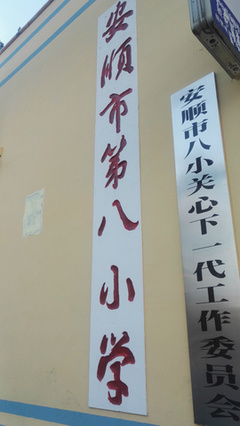 安顺市第八小学
安顺市八小关心下一代工作委员会